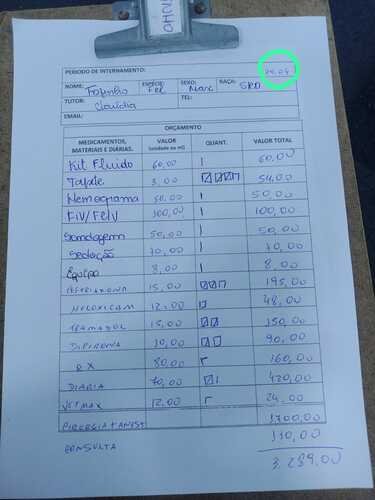 PERÍODO DE INTERNAMENTO:
NOME: Fofinho ESPÉCIE: Fel SEXO: Mac RAÇA: SRD
TUTOR: Claudia TEL:
EMAIL:
ORÇAMENTO
MEDICAMENTOS, MATERIAIS E DIÁRIAS. VALOR (unidade ou ml) QUANT. VALOR TOTAL
Kit Fluido 60,00 1 60,00
Tapete 3,00 54,00
Hemograma 50,00 1 50,00
Fiv/Felv 100,00 1 100,00
Sondagem 50,00 1 50,00
Sedação 70,00 1 70,00
Equipo 8,00 1 8,00
CEFTRIAXONA 15,00 195,00
MELOXICAM 12,00 48,00
TRAMADOL 15,00 150,00
DIPIRONA 10,00 90,00
RX 80,00 160,00
DIARIA 70,00 420,00
VETMAX 12,00 24,00
CIRURGIA + ANEST 1700,00
CONSULTA 110,00
3.289,00